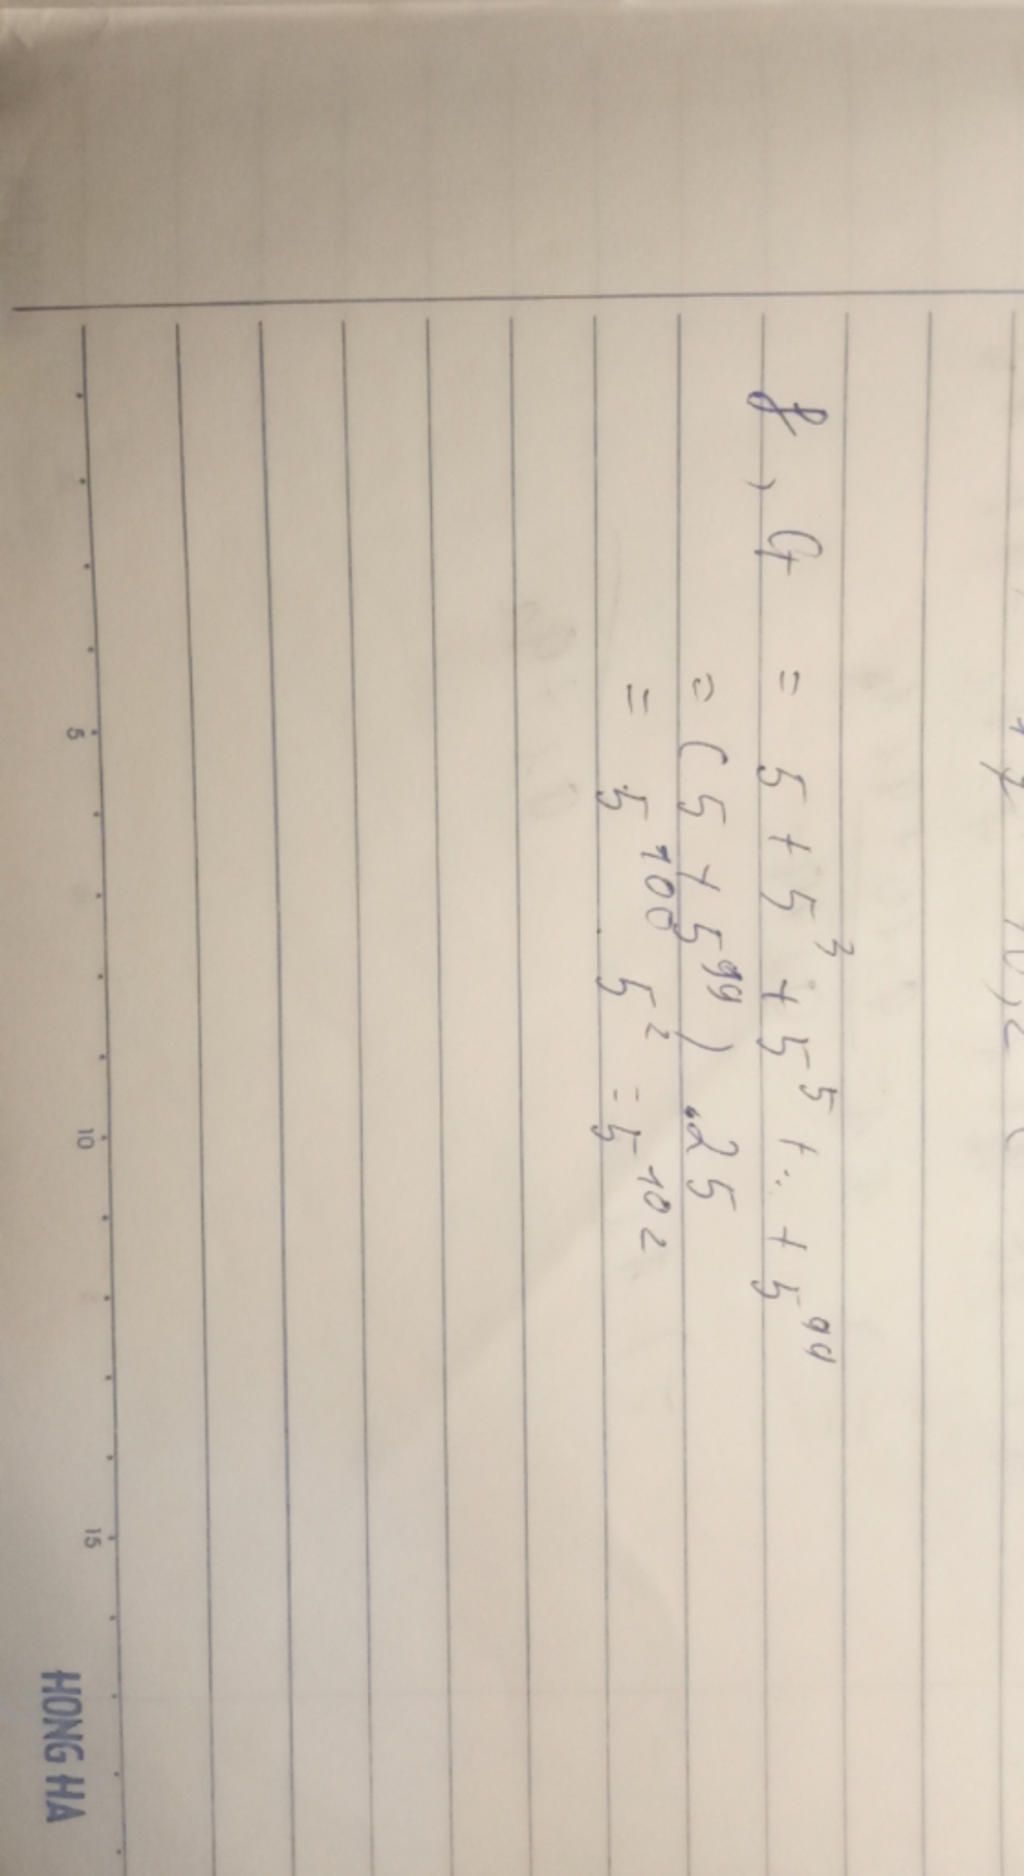 f, G = 5 + 5³ + 5⁵ + ... + 5⁹⁹
= (5 + 5⁹⁹) . 25
= 5¹⁰⁰ 5² = 5¹⁰²
5 10 15
HONG HA